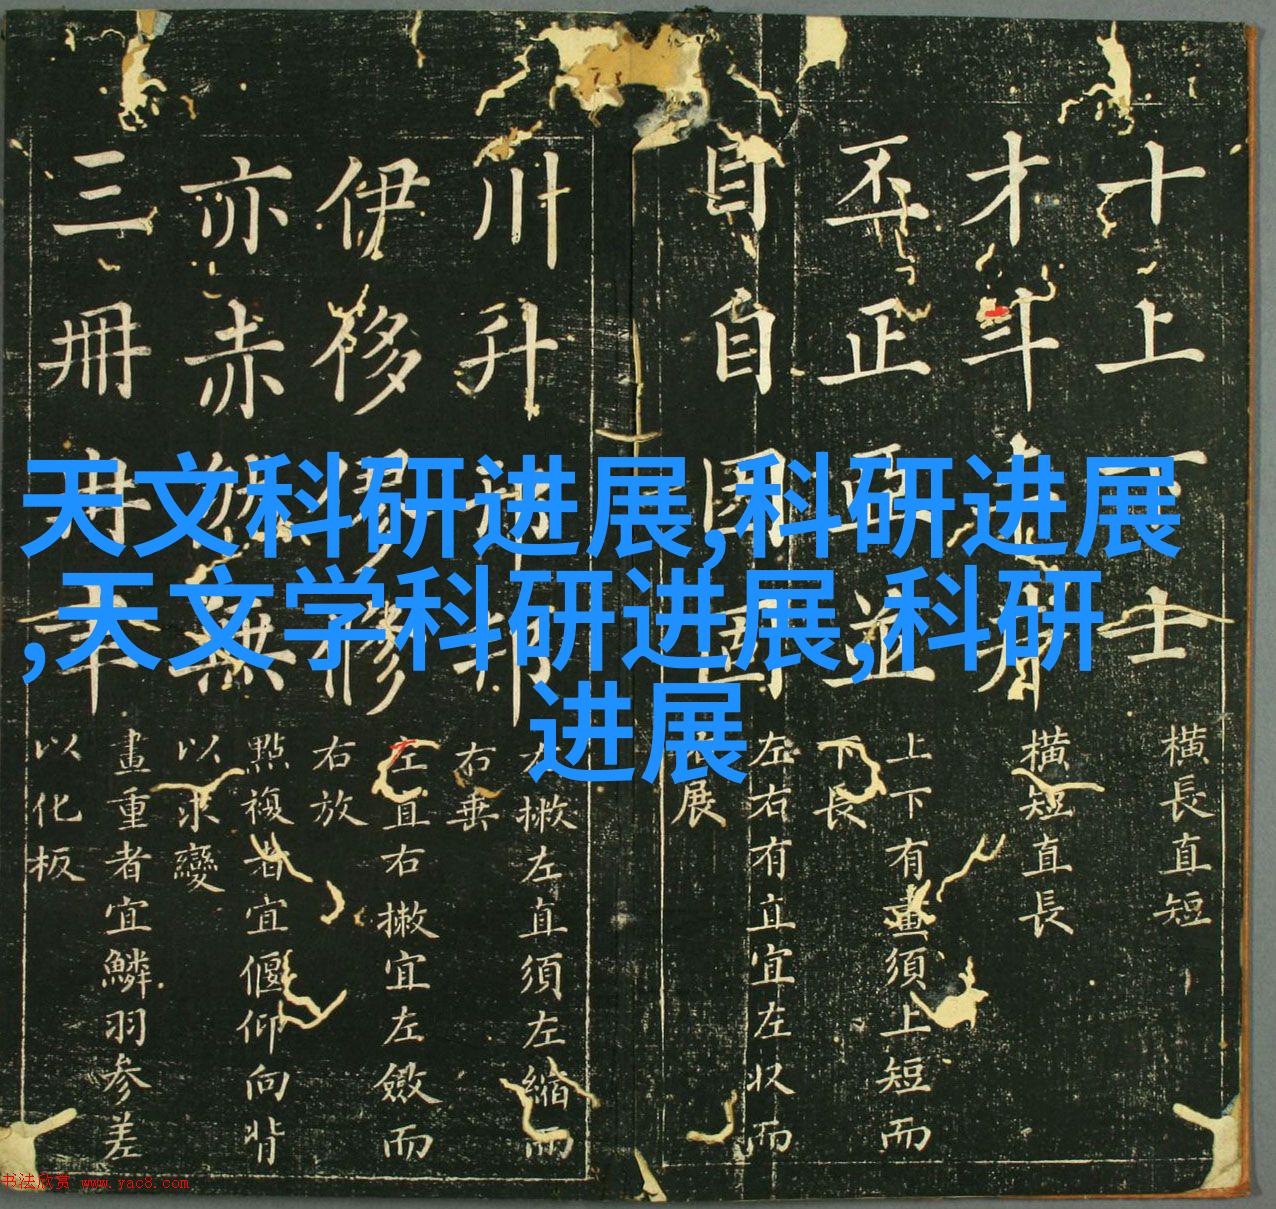 天文科研进展,科研进展
,天文学科研进展,科研
进展
十上下士
橫長直短
才斗
橫短直長
丕正亞並
上下有畫須上短而
下長
自自固因
左右有直宜左收而
右展
川升
右撇左直須左縮而
右垂
伊侈
左直右撇宜左斂而
右放
亦赤然無
點複者宜偃仰向背
以求變
三冊
畫重者宜鱗羽参差
以化板
书法欣赏 www.yac8.com